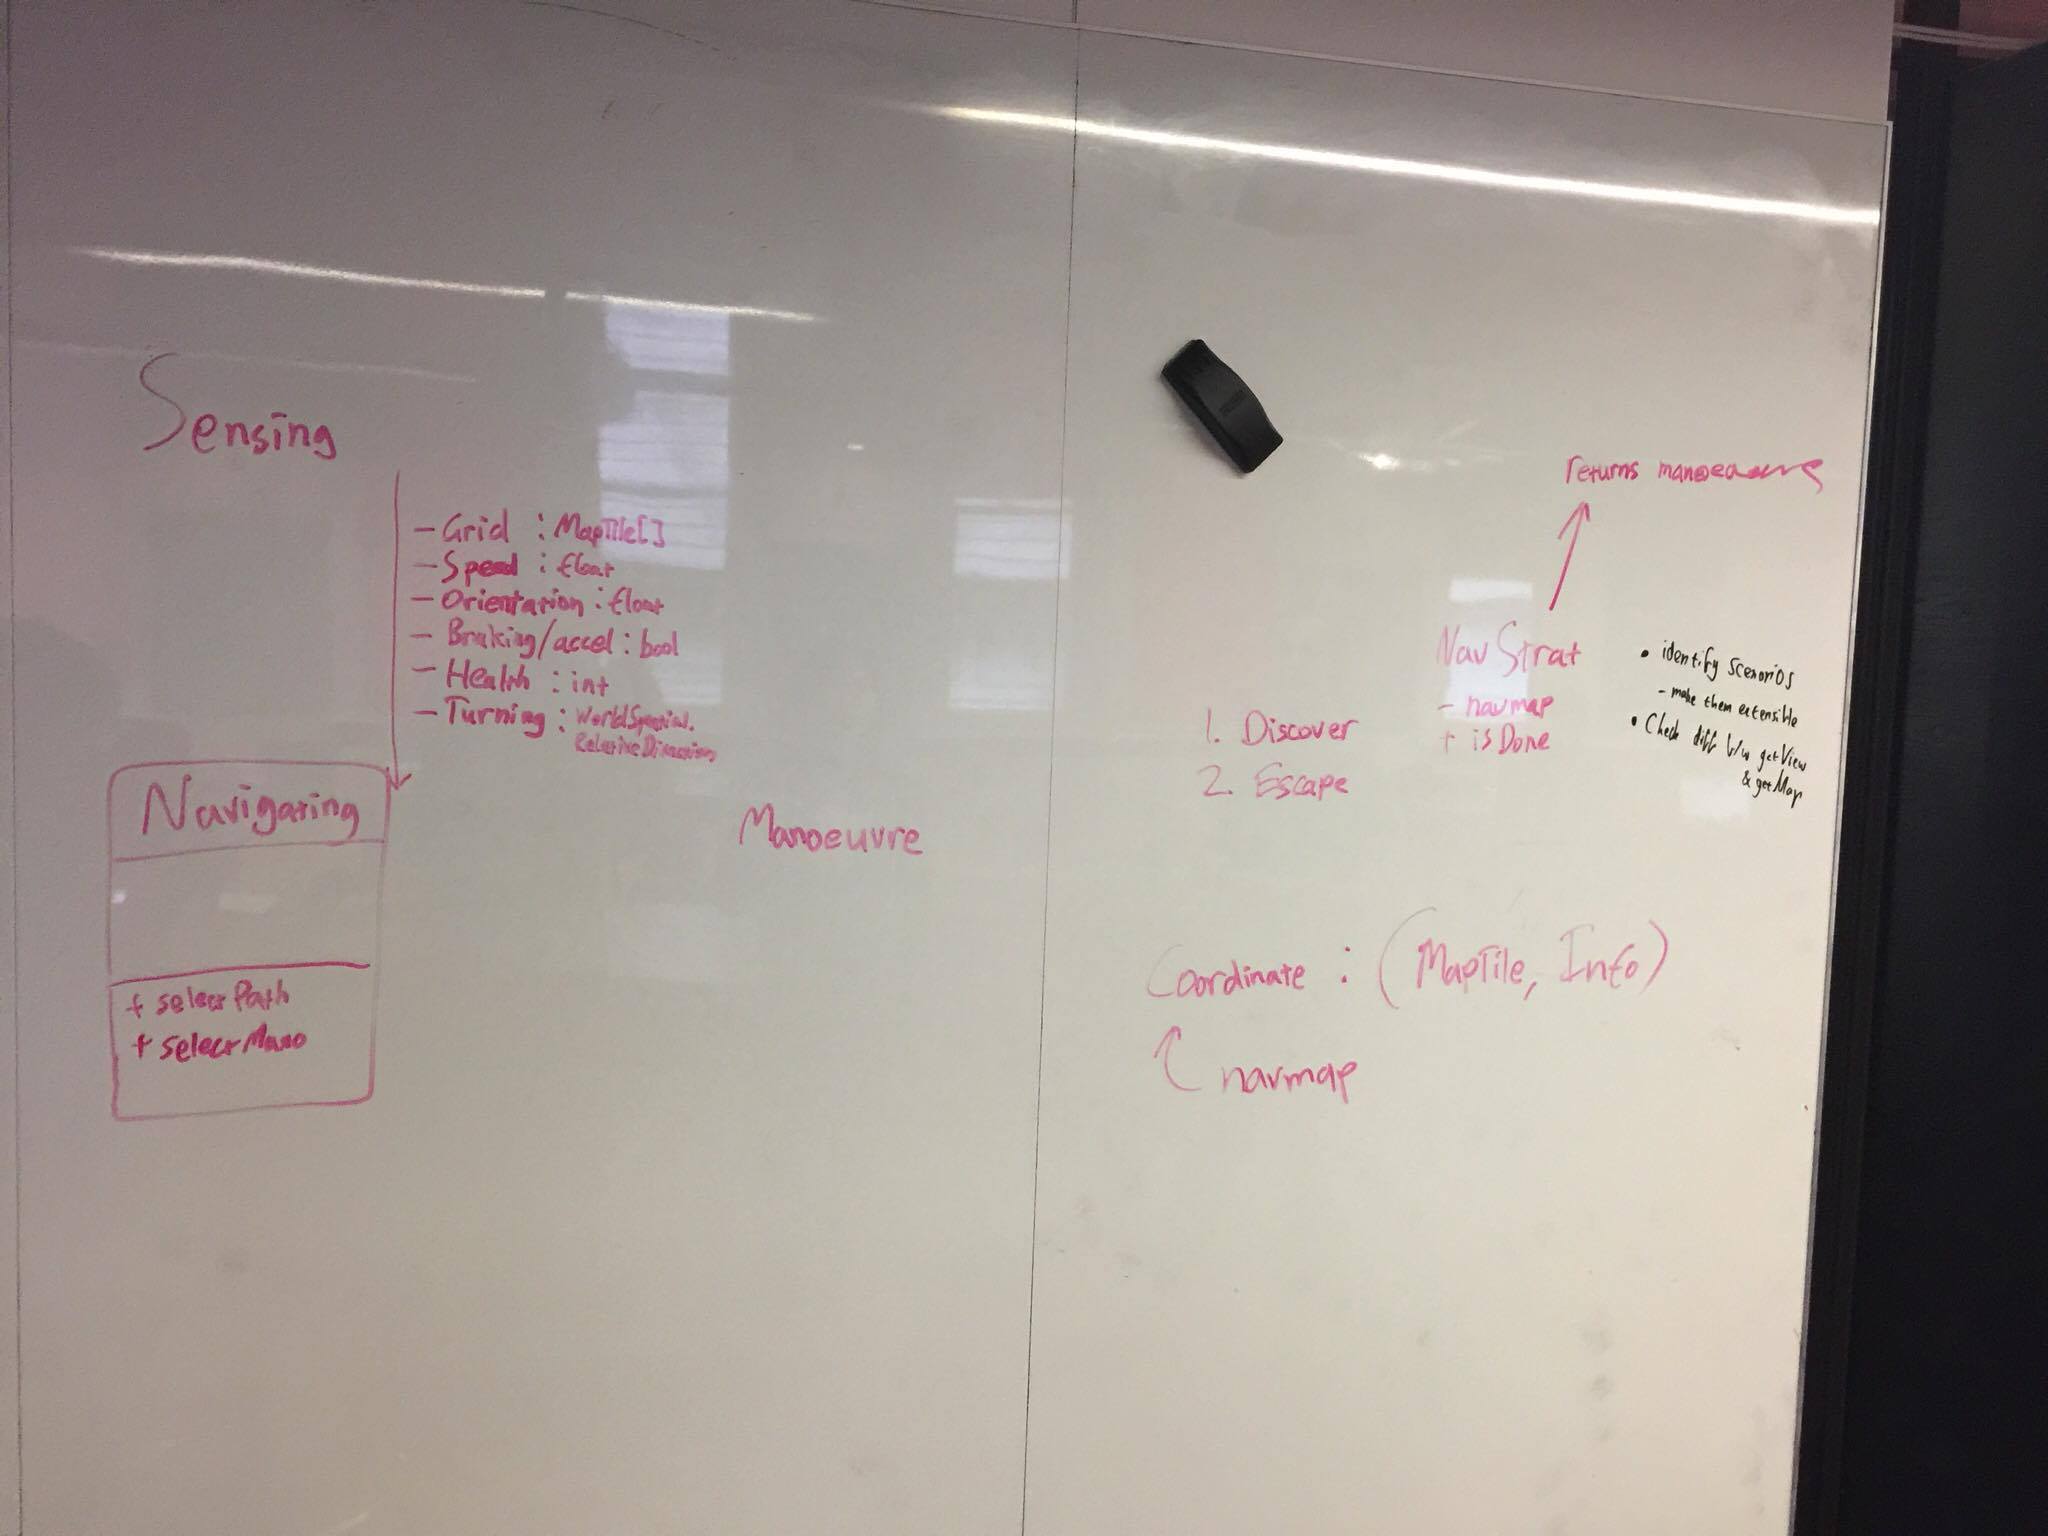 Sensing
- Grid : MapTile[]
- Speed : float
- Orientation : float
- Braking/accel : bool
- Health : int
- Turning : WorldSpatial.
RelativeDirection
Navigating
+ selectPath
+ selectMano
Manoeuvre
returns manoeuvre
NavStrat
- navmap
+ isDone
1. Discover
2. Escape
• identify scenarios
- make them extensible
• Check diff b/w getView
& getMap
Coordinate : (MapTile, Info)
navmap